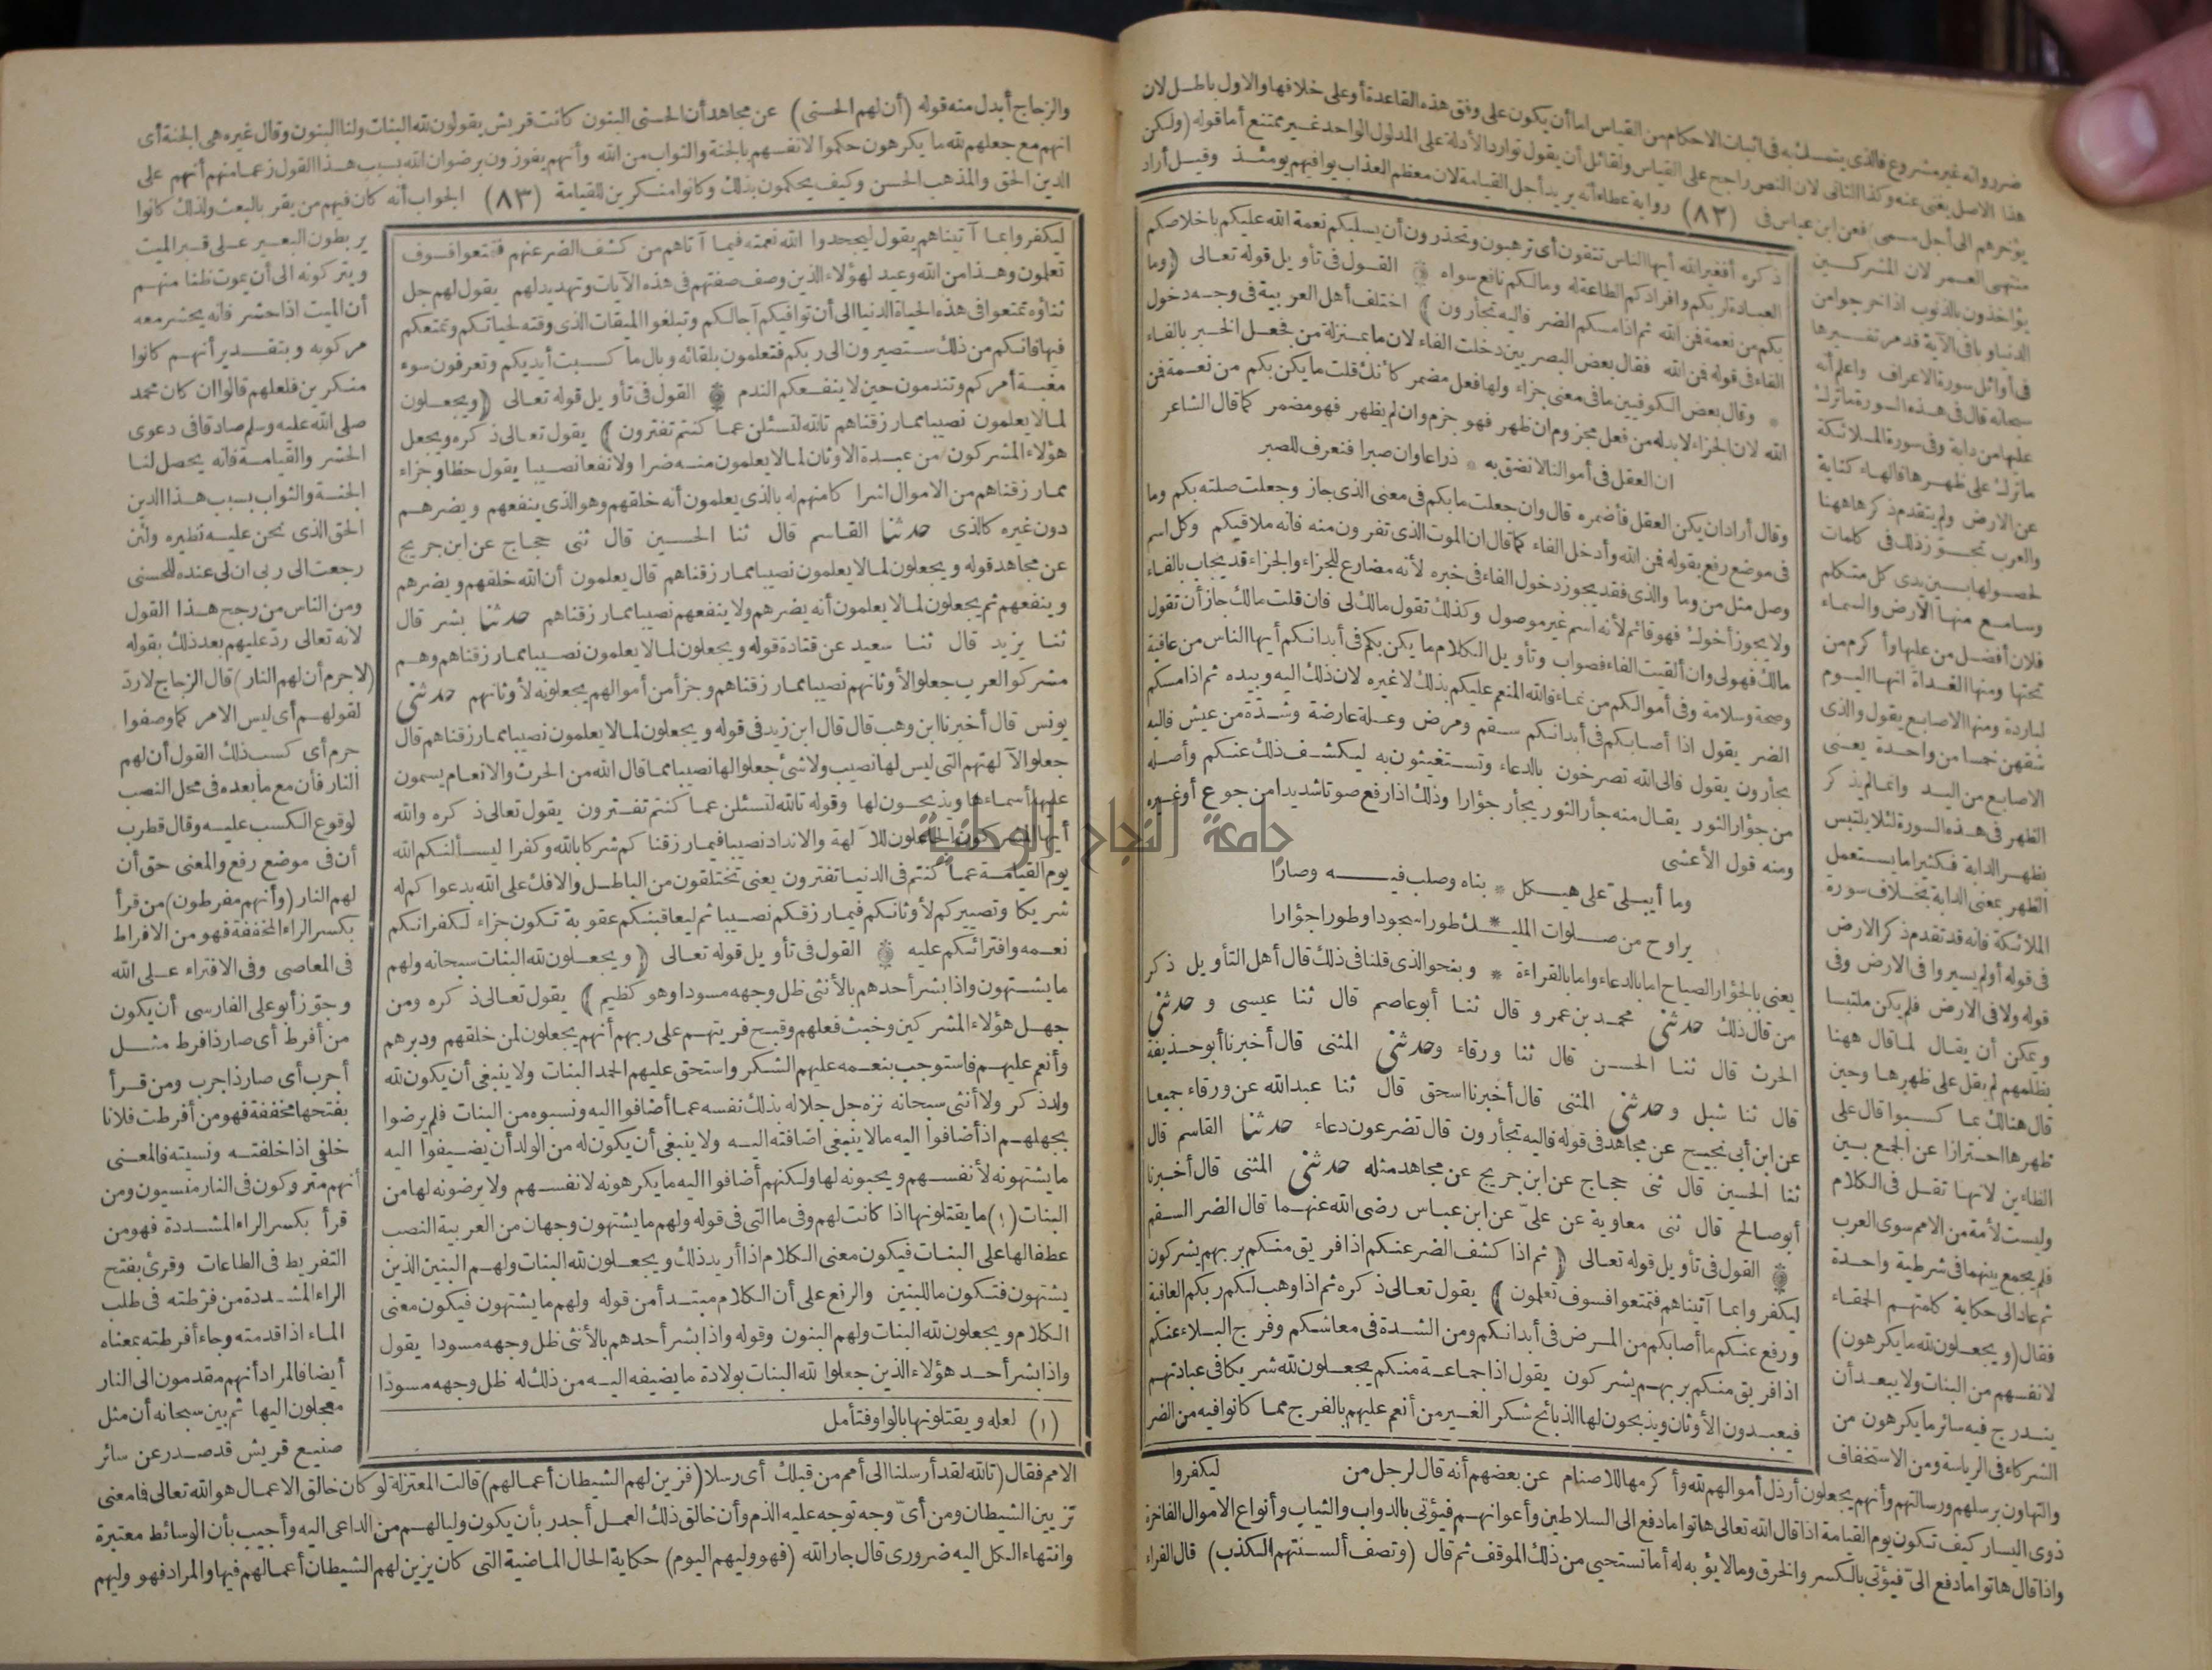 ضرر وانه غير مشروع فالذى يتمسك به فى اثبات الاحكام من القياس اما أن يكون على وفق هذه القاعدة أو على خلافها والاول باطل لان
هذا الاصل يغنى عنه وكذا الثانى لان النص راجح على القياس ولقائل أن يقول توارد الأدلة على المدلول الواحد غير ممتنع أما قوله (ولكن
يؤخرهم الى أجل مسمى) فعن ابن عباس فى (٨٢) رواية عطاء أنه يريد أجل القيامة لان معظم العذاب يوافيهم يومئذ وقيل أراد
منتهى العمر لان المشركين
يؤاخذون بالذنوب اذا خرجوا من
الدنيا وباقى الآية قد مر تفسيرها
فى أوائل سورة الاعراف واعلم أنه
سبحانه قال فى هذه السورة ما ترك
عليها من دابة وفى سورة الملائكة
ما ترك على ظهرها فالهاء كناية
عن الارض ولم يتقدم ذكرها ههنا
والعرب تجوّز ذلك فى كلمات
لحصولها بين يدى كل متكلم
وسامع منها الأرض والسماء
فلان أفضل من عليها وأكرم من
تحتها ومنها الغداة انها اليوم
لباردة ومنها الاصابع يقول والذى
شقهن خمسا من واحدة يعنى
الاصابع من اليد وانما لم يذكر
الظهر فى هذه السورة لئلا يلتبس
بظهر الدابة فكثيرا ما يستعمل
الظهر بمعنى الدابة بخلاف سورة
الملائكة فانه قد تقدم ذكر الارض
فى قوله أولم يسيروا فى الارض وفى
قوله ولا فى الارض فلم يكن ملتبسا
ويمكن أن يقال لما قال ههنا
بظلمهم لم يقل على ظهرها وحين
قال هنالك بما كسبوا قال على
ظهرها احترازا عن الجمع بين
الظاءين لانها تقل فى الكلام
وليست لأمة من الامم سوى العرب
فلم يجمع بينهما فى شرطية واحدة
ثم عاد الى حكاية كلمتهم الحمقاء
فقال (ويجعلون لله ما يكرهون)
لانفسهم من البنات ولا يبعد أن
يندرج فيه سائر ما يكرهون من
الشركاء فى الرياسة ومن الاستخفاف
ذكره أفغير الله أيها الناس تتقون أى ترهبون وتحذرون أن يسلبكم نعمة الله عليكم باخلاصكم
العبادة لربكم وافرادكم الطاعة له وما لكم نافع سواه القول فى تأويل قوله تعالى (وما
بكم من نعمة فمن الله ثم اذا مسكم الضر فاليه تجأرون) اختلف أهل العربية فى وجه دخول
الفاء فى قوله فمن الله فقال بعض البصريين دخلت الفاء لان ما بمنزلة من فجعل الخبر بالفاء
* وقال بعض الكوفيين ما فى معنى جزاء ولها فعل مضمر كأنك قلت ما يكن بكم من نعمة فمن
الله لان الجزاء لا بد له من فعل مجزوم ان ظهر فهو جزم وان لم يظهر فهو مضمر كما قال الشاعر
ان العقل فى أموالنا لا نضق به * ذراعا وان صبرا فنعرف للصبر
وقال أراد ان يكن العقل فأضمره قال وان جعلت ما بكم فى معنى الذى جاز وجعلت صلته بكم وما
فى موضع رفع بقوله فمن الله وأدخل الفاء كما قال ان الموت الذى تفرون منه فانه ملاقيكم وكل اسم
وصل مثل من وما والذى فقد يجوز دخول الفاء فى خبره لأنه مضارع للجزاء والجزاء قد يجاب بالفاء
ولا يجوز أخوك فهو قائم لأنه اسم غير موصول وكذلك تقول مالك لى فان قلت مالك جاز أن تقول
مالك فهو لى وان ألقيت الفاء فصواب وتأويل الكلام ما يكن بكم فى أبدانكم أيها الناس من عافية
وصحة وسلامة وفى أموالكم من نماء فالله المنعم عليكم بذلك لا غيره لان ذلك اليه وبيده ثم اذا مسكم
الضر يقول اذا أصابكم فى أبدانكم سقم ومرض وعلة عارضة وشدة من عيش فاليه
تجأرون يقول فالى الله تصرخون بالدعاء وتستغيثون به ليكشف ذلك عنكم وأصله
من جؤار الثور يقال منه جأر الثور يجأر جؤارا وذلك اذا رفع صوتا شديدا من جوع أو غيره
ومنه قول الأعشى
وما أيبلىّ على هيكل * بناه وصلب فيه وصارا
يراوح من صلوات المليك * طورا سجودا وطورا جؤارا
يعنى بالجؤار الصياح اما بالدعاء واما بالقراءة * وبنحو الذى قلنا فى ذلك قال أهل التأويل ذكر
من قال ذلك حدثنى محمد بن عمرو قال ثنا أبو عاصم قال ثنا عيسى وحدثنى
الحرث قال ثنا الحسن قال ثنا ورقاء وحدثنى المثنى قال أخبرنا أبو حذيفة
قال ثنا شبل وحدثنى المثنى قال أخبرنا اسحق قال ثنا عبد الله عن ورقاء جميعا
عن ابن أبى نجيح عن مجاهد فى قوله فاليه تجأرون قال تضرعون دعاء حدثنا القاسم قال
ثنا الحسين قال ثنى حجاج عن ابن جريج عن مجاهد مثله حدثنى المثنى قال أخبرنا
أبو صالح قال ثنى معاوية عن علىّ عن ابن عباس رضى الله عنهما قال الضر السقم
القول فى تأويل قوله تعالى (ثم اذا كشف الضر عنكم اذا فريق منكم بربهم يشركون
ليكفروا بما آتيناهم فتمتعوا فسوف تعلمون) يقول تعالى ذكره ثم اذا وهب لكم ربكم العافية
ورفع عنكم ما أصابكم من المرض فى أبدانكم ومن الشدة فى معاشكم وفرج البلاء عنكم
اذا فريق منكم بربهم يشركون يقول اذا جماعة منكم يجعلون لله شريكا فى عبادتهم
فيعبدون الأوثان ويذبحون لها الذبائح شكرا لغير من أنعم عليهم بالفرج مما كانوا فيه من الضر
ليكفروا
والتهاون برسلهم ورسالتهم وأنهم يجعلون أرذل أموالهم لله وأكرمها للاصنام عن بعضهم أنه قال لرجل من
ذوى اليسار كيف تكون يوم القيامة اذا قال الله تعالى هاتوا ما دفع الى السلاطين وأعوانهم فيؤتى بالدواب والثياب وأنواع الاموال الفاخرة
واذا قال هاتوا ما دفع الىّ فيؤتى بالكسر والخرق وما لا يؤبه له أما تستحيى من ذلك الموقف ثم قال (وتصف ألسنتهم الكذب) قال الفراء
والزجاج أبدل منه قوله (أن لهم الحسنى) عن مجاهد أن الحسنى البنون كانت قريش يقولون لله البنات ولنا البنون وقال غيره هى الجنة أى
انهم مع جعلهم لله ما يكرهون حكموا لانفسهم بالجنة والثواب من الله وأنهم يفوزون برضوان الله بسبب هذا القول زعما منهم أنهم على
الدين الحق والمذهب الحسن وكيف يحكمون بذلك وكانوا منكرين للقيامة (٨٣) الجواب أنه كان فيهم من يقر بالبعث ولذلك كانوا
يربطون البعير على قبر الميت
ويتركونه الى أن يموت ظنا منهم
أن الميت اذا حشر فانه يحشر معه
مركوبه وبتقدير أنهم كانوا
منكرين فلعلهم قالوا ان كان محمد
صلى الله عليه وسلم صادقا فى دعوى
الحشر والقيامة فانه يحصل لنا
الجنة والثواب بسبب هذا الدين
الحق الذى نحن عليه نظيره ولئن
رجعت الى ربى ان لى عنده للحسنى
ومن الناس من رجح هذا القول
لانه تعالى ردّ عليهم بعد ذلك بقوله
(لا جرم أن لهم النار) قال الزجاج لا ردّ
لقولهم أى ليس الامر كما وصفوا
جرم أى كسب ذلك القول أن لهم
النار فأن مع ما بعده فى محل النصب
لوقوع الكسب عليه وقال قطرب
أن فى موضع رفع والمعنى حق أن
لهم النار (وأنهم مفرطون) من قرأ
بكسر الراء المخففة فهو من الافراط
فى المعاصى وفى الافتراء على الله
وجوّز أبو على الفارسى أن يكون
من أفرط أى صار ذا فرط مثل
أجرب أى صار ذا جرب ومن قرأ
بفتحها مخففة فهو من أفرطت فلانا
خلفى اذا خلفته ونسيته فالمعنى
أنهم متروكون فى النار منسيون ومن
قرأ بكسر الراء المشددة فهو من
التفريط فى الطاعات وقرئ بفتح
الراء المشددة من فرّطته فى طلب
الماء اذا قدمته وجاء أفرطته بمعناه
أيضا فالمراد أنهم مقدمون الى النار
معجلون اليها ثم بين سبحانه أن مثل
صنيع قريش قد صدر عن سائر
ليكفروا بما آتيناهم يقول ليجحدوا الله نعمته فيما آتاهم من كشف الضر عنهم فتمتعوا فسوف
تعلمون وهذا من الله وعيد لهؤلاء الذين وصف صفتهم فى هذه الآيات وتهديد لهم يقول لهم جل
ثناؤه تمتعوا فى هذه الحياة الدنيا الى أن توافيكم آجالكم وتبلغوا الميقات الذى وقته لحياتكم وتمتعكم
فيها فانكم من ذلك ستصيرون الى ربكم فتعلمون بلقائه وبال ما كسبت أيديكم وتعرفون سوء
مغبة أمركم وتندمون حين لا ينفعكم الندم القول فى تأويل قوله تعالى (ويجعلون
لما لا يعلمون نصيبا مما رزقناهم تالله لتسئلن عما كنتم تفترون) يقول تعالى ذكره ويجعل
هؤلاء المشركون من عبدة الاوثان لما لا يعلمون منه ضرا ولا نفعا نصيبا يقول حظا وجزاء
مما رزقناهم من الاموال اشرا كا منهم له بالذى يعلمون أنه خلقهم وهو الذى ينفعهم ويضرهم
دون غيره كالذى حدثنا القاسم قال ثنا الحسين قال ثنى حجاج عن ابن جريج
عن مجاهد قوله ويجعلون لما لا يعلمون نصيبا مما رزقناهم قال يعلمون أن الله خلقهم ويضرهم
وينفعهم ثم يجعلون لما لا يعلمون أنه يضرهم ولا ينفعهم نصيبا مما رزقناهم حدثنا بشر قال
ثنا يزيد قال ثنا سعيد عن قتادة قوله ويجعلون لما لا يعلمون نصيبا مما رزقناهم وهم
مشركو العرب جعلوا لأوثانهم نصيبا مما رزقناهم وجزأ من أموالهم يجعلونه لأوثانهم حدثنى
يونس قال أخبرنا ابن وهب قال قال ابن زيد فى قوله ويجعلون لما لا يعلمون نصيبا مما رزقناهم قال
جعلوا لآلهتهم التى ليس لها نصيب ولا شئ جعلوا لها نصيبا مما قال الله من الحرث والانعام يسمون
عليها أسماءها ويذبحون لها وقوله تالله لتسئلن عما كنتم تفترون يقول تعالى ذكره والله
أيها المشركون الجاعلون للآلهة والانداد نصيبا فيما رزقناكم شركا بالله وكفرا ليسألنكم الله
يوم القيامة عما كنتم فى الدنيا تفترون يعنى تختلقون من الباطل والافك على الله بدعواكم له
شريكا وتصييركم لأوثانكم فيما رزقكم نصيبا ثم ليعاقبنكم عقوبة تكون جزاء لكفرانكم
نعمه وافترائكم عليه القول فى تأويل قوله تعالى (ويجعلون لله البنات سبحانه ولهم
ما يشتهون واذا بشر أحدهم بالأنثى ظل وجهه مسودا وهو كظيم) يقول تعالى ذكره ومن
جهل هؤلاء المشركين وخبث فعلهم وقبح فريتهم على ربهم أنهم يجعلون لمن خلقهم ودبرهم
وأنعم عليهم فاستوجب بنعمه عليهم الشكر واستحق عليهم الحمد البنات ولا ينبغى أن يكون لله
ولد ذكر ولا أنثى سبحانه نزه جل جلاله بذلك نفسه عما أضافوا اليه ونسبوه من البنات فلم يرضوا
بجهلهم اذ أضافوا اليه ما لا ينبغى اضافته اليه ولا ينبغى أن يكون له من الولد أن يضيفوا اليه
ما يشتهونه لأنفسهم ويحبونه لها ولكنهم أضافوا اليه ما يكرهونه لانفسهم ولا يرضونه لها من
البنات (١) ما يقتلونها اذا كانت لهم وفى ما التى فى قوله ولهم ما يشتهون وجهان من العربية النصب
عطفا لها على البنات فيكون معنى الكلام اذا أريد ذلك ويجعلون لله البنات ولهم البنين الذين
يشتهون فتكون ما للبنين والرفع على أن الكلام مبتدأ من قوله ولهم ما يشتهون فيكون معنى
الكلام ويجعلون لله البنات ولهم البنون وقوله واذا بشر أحدهم بالأنثى ظل وجهه مسودا يقول
واذا بشر أحد هؤلاء الذين جعلوا لله البنات بولادة ما يضيفه اليه من ذلك له ظل وجهه مسودّا
(١) لعله ويقتلونها بالواو فتأمل
الامم فقال (تالله لقد أرسلنا الى أمم من قبلك أى رسلا (فزين لهم الشيطان أعمالهم) قالت المعتزلة لو كان خالق الاعمال هو الله تعالى فما معنى
تزيين الشيطان ومن أىّ وجه توجه عليه الذم وأن خالق ذلك العمل أجدر بأن يكون وليا لهم من الداعى اليه وأجيب بأن الوسائط معتبرة
وانتهاء الكل اليه ضرورى قال جار الله (فهو وليهم اليوم) حكاية الحال الماضية التى كان يزين لهم الشيطان أعمالهم فيها والمراد فهو وليهم
جامعة النجاح الوطنية